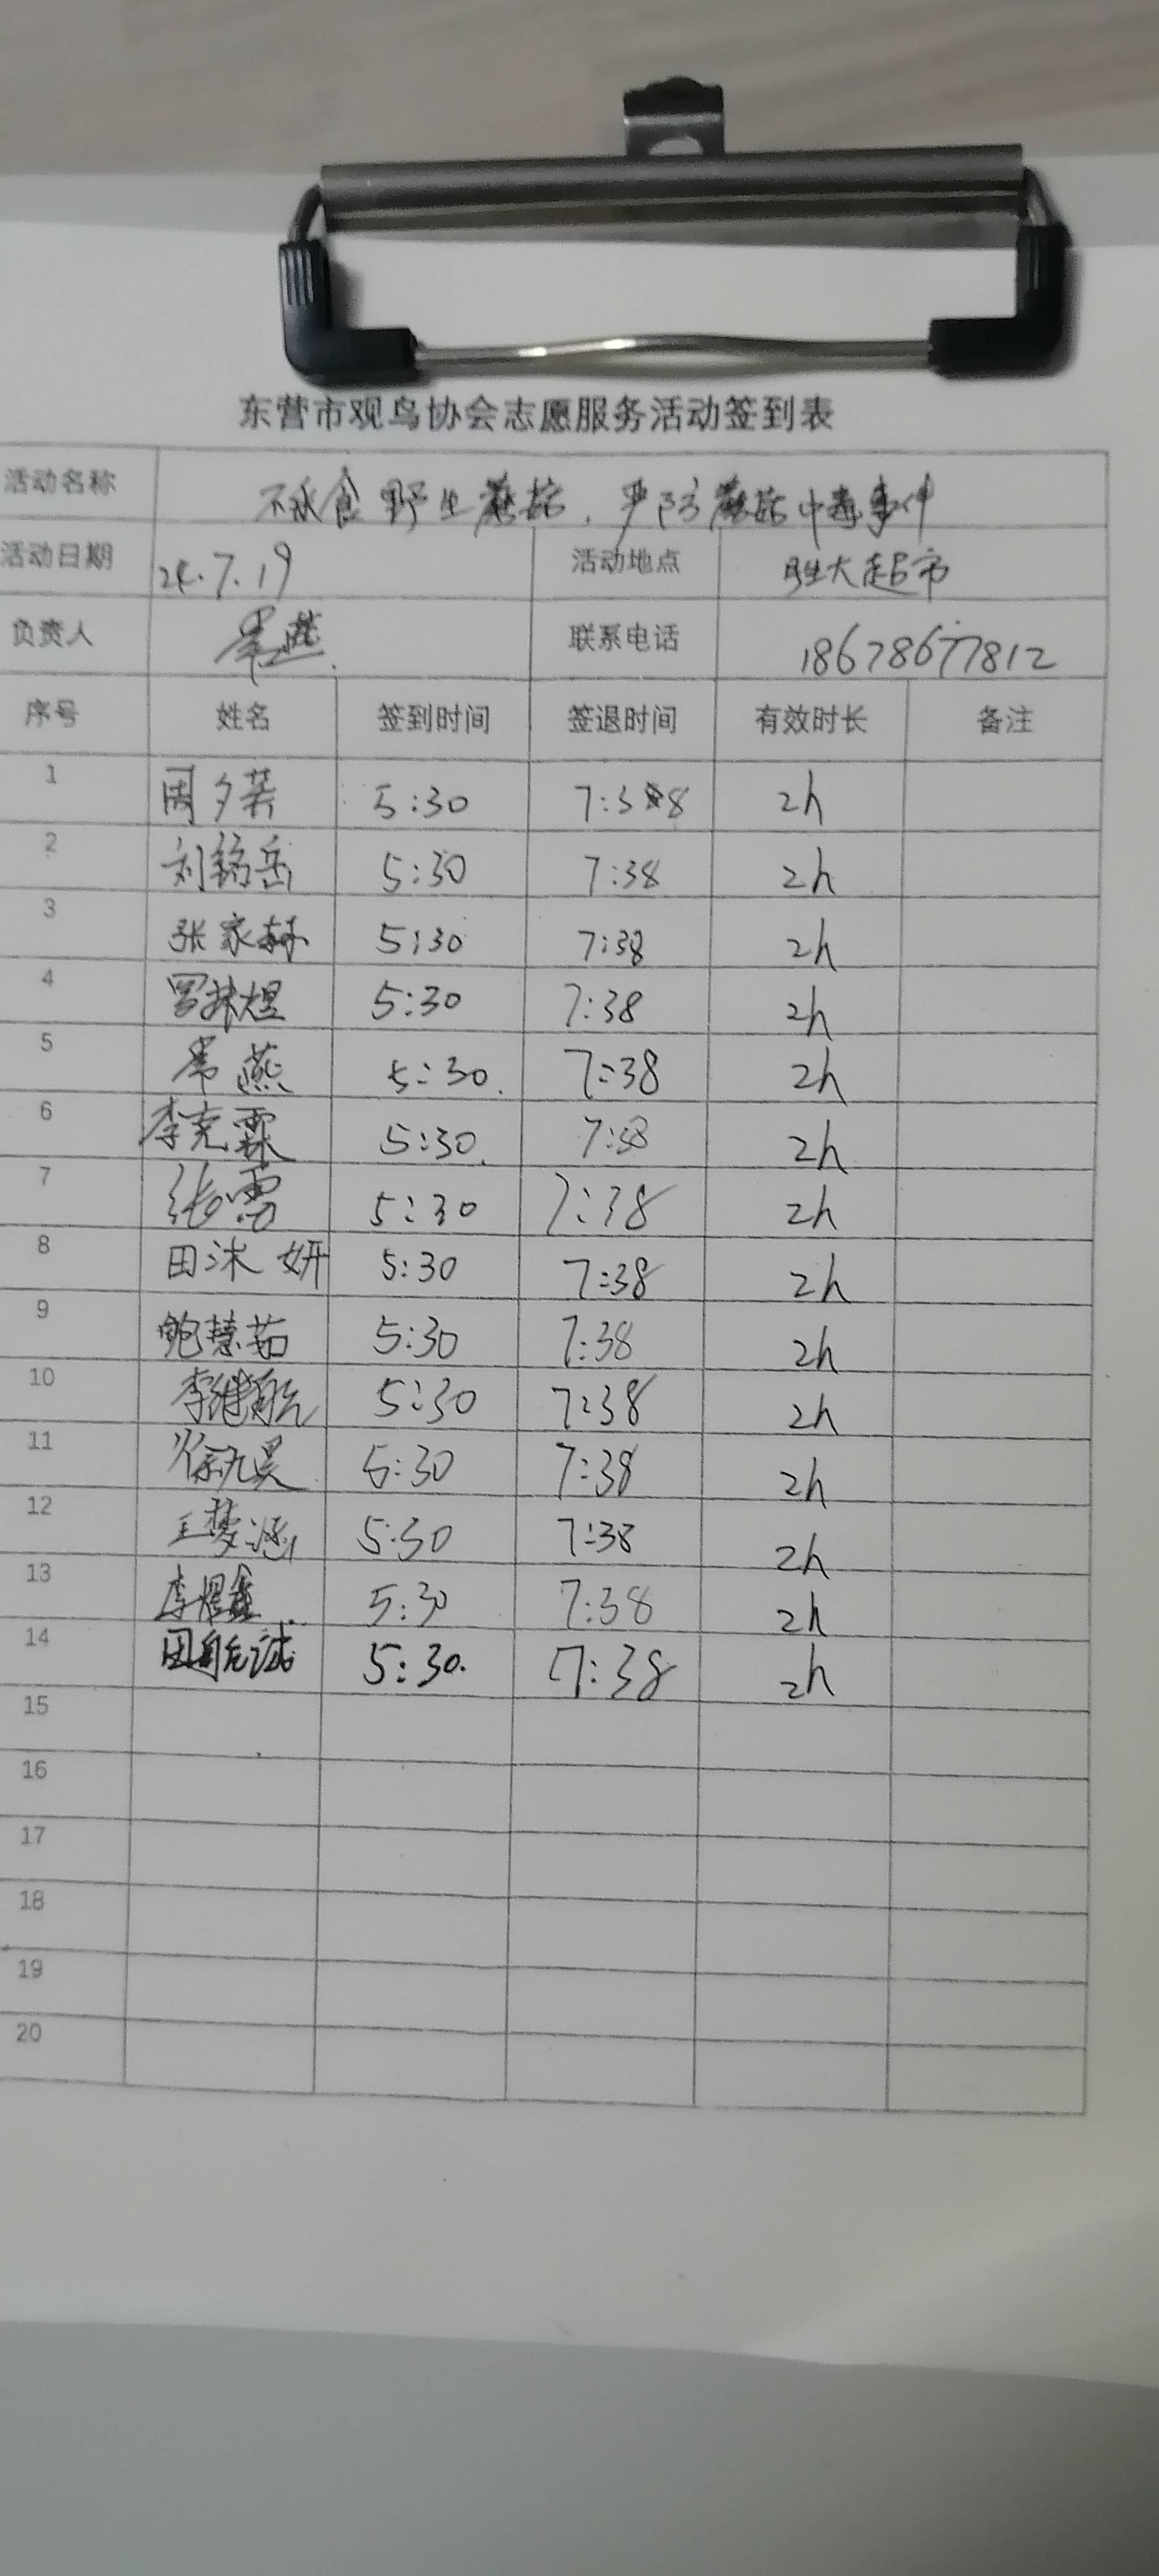 东营市观鸟协会志愿服务活动签到表
活动名称 不采食野生蘑菇，严防蘑菇中毒事件
活动日期 24.7.19 活动地点 胜大超市
负责人 燕 联系电话 18678677812
序号 姓名 签到时间 签退时间 有效时长 备注
1 周夕若 5:30 7:38 2h
2 刘铭岳 5:30 7:38 2h
3 张家赫 5:30 7:38 2h
4 罗煜 5:30 7:38 2h
5 燕 5:30 7:38 2h
6 李克霖 5:30 7:38 2h
7 张雪 5:30 7:38 2h
8 田沐妍 5:30 7:38 2h
9 鲍慧茹 5:30 7:38 2h
10 李继航 5:30 7:38 2h
11 徐九昊 5:30 7:38 2h
12 王梦涵 5:30 7:38 2h
13 李煜鑫 5:30 7:38 2h
14 田航诚 5:30. 7:38 2h
15
16
17
18
19
20